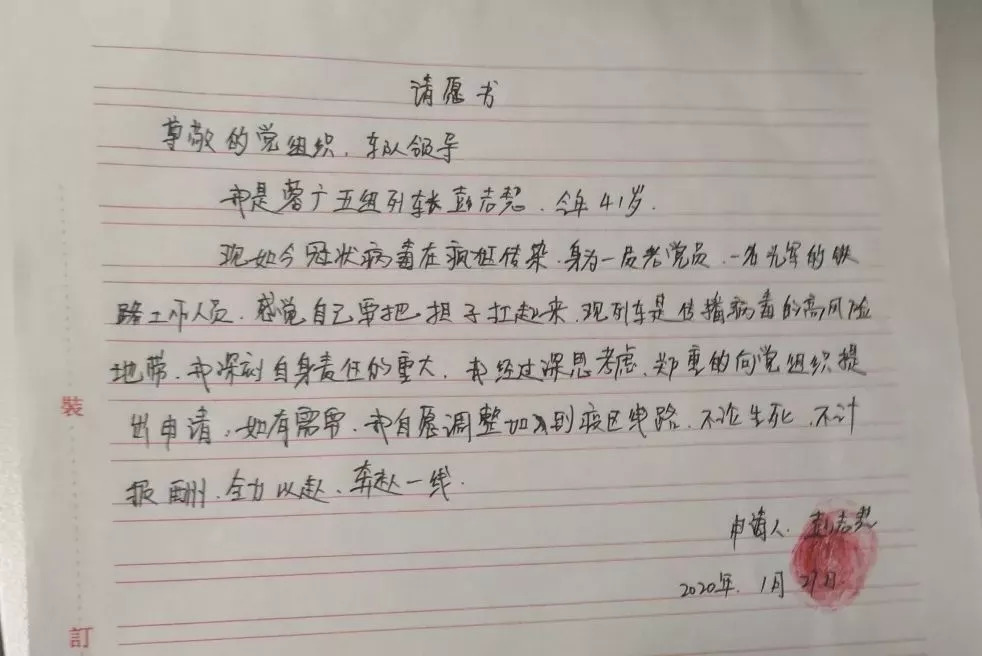 请愿书
尊敬的党组织、车队领导
我是蓉广五组列车长彭志
现如今冠状病毒在疯狂传染.身为一名老党员.一名光荣的铁
路工作人员.感觉自己要把担子扛起来.现列车是传播病毒的高风险
地带.我深刻自身责任的重大.我经过深思考虑.郑重的向党组织提
出申请.如有需要.我自愿调整加入到疫区线路.不论生死.不计
报酬.全力以赴.奔赴一线.
申请人.彭志
2020年.1月27日.
裝
訂